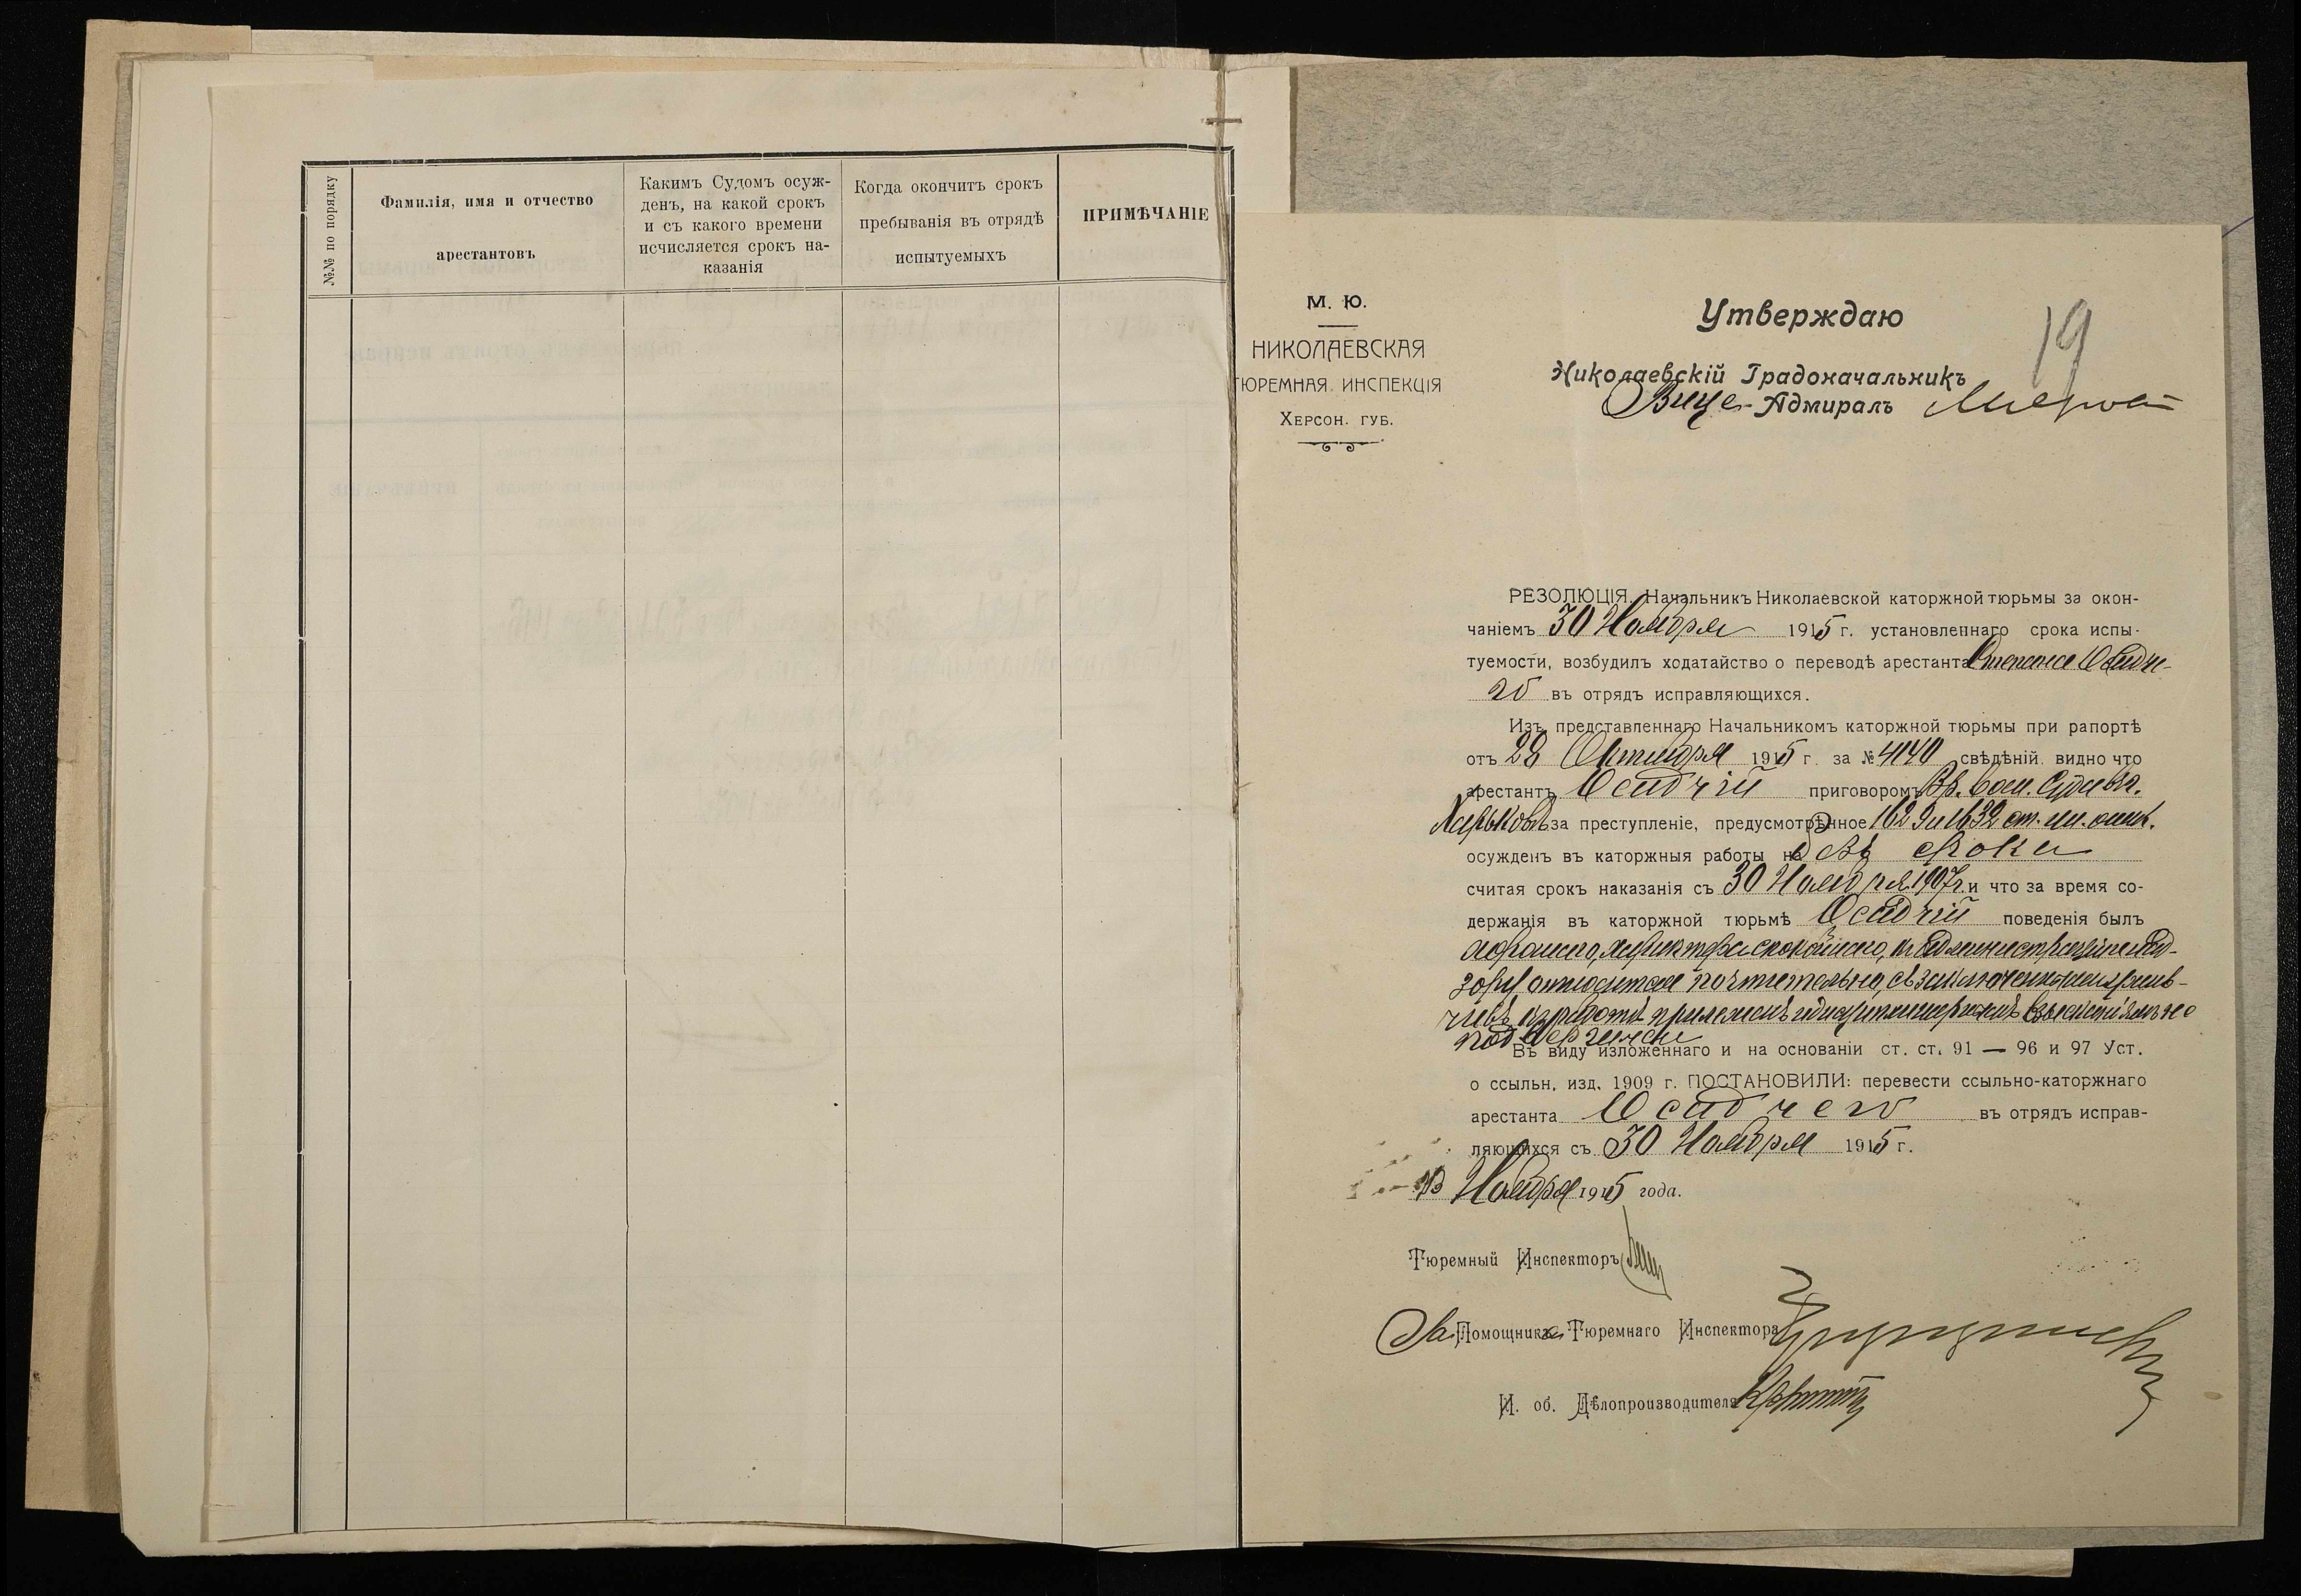 №№ по порядку
Фамилія, имя и отчество
арестантовъ
Какимъ Судомъ осуж-
денъ, на какой срокъ
и съ какого времени
исчисляется срокъ на-
казанія
Когда окончитъ срокъ
пребыванія въ отрядѣ
испытуемыхъ
ПРИМѢЧАНІЕ
М. Ю.
НИКОЛАЕВСКАЯ
ТЮРЕМНАЯ ИНСПЕКЦІЯ
ХЕРСОН. ГУБ.
19
Утверждаю
Николаевскій Градоначальникъ
Вице-Адмиралъ
РЕЗОЛЮЦІЯ. Начальникъ Николаевской каторжной тюрьмы за окон-
чаніемъ 30 Ноября 1915 г. установленнаго срока испы-
туемости, возбудилъ ходатайство о переводѣ арестанта Степана Осадче-
го въ отрядъ исправляющихся.
Изъ представленнаго Начальникомъ каторжной тюрьмы при рапортѣ
отъ 28 Октября 1915 г. за № 4140 свѣдѣній видно что
арестантъ Осадчій приговоромъ Вр. Воен. Суда въ г.
Харьковѣ за преступленіе, предусмотрѣнное 1629 и 1632 ст. ул. о нак.
осужденъ въ каторжныя работы на безъ срока
считая срокъ наказанія съ 30 Ноября 1907 г. и что за время со-
держанія въ каторжной тюрьмѣ Осадчій поведенія былъ
хорошаго, характера спокойнаго, къ администраціи и над-
зору относится почтительно, съ заключенными ужив-
чивъ, къ работѣ прилеженъ и дисциплинарнымъ взысканіямъ не
подвергался
Въ виду изложеннаго и на основаніи ст. ст. 91 — 96 и 97 Уст.
о ссыльн. изд. 1909 г. ПОСТАНОВИЛИ: перевести ссыльно-каторжнаго
арестанта Осадчего въ отрядъ исправ-
ляющихся съ 30 Ноября 1915 г.
Ноября 1915 года.
Тюремный Инспекторъ
За Помощника Тюремнаго Инспектора
И. об. Дѣлопроизводителя